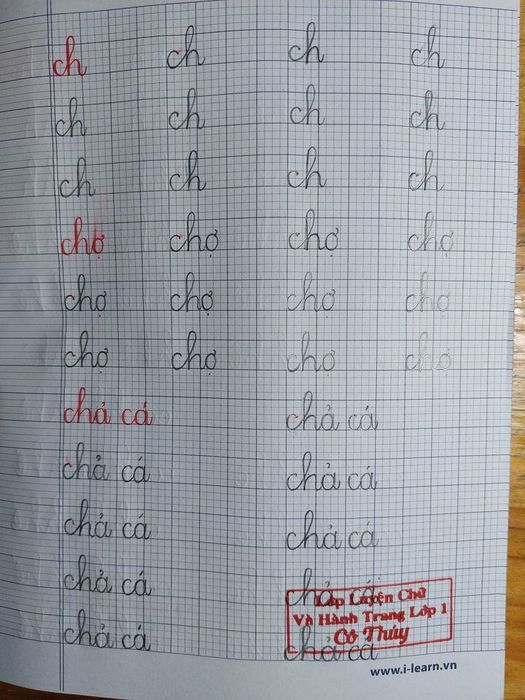 ch ch ch ch
ch ch ch ch
ch ch ch ch
chợ chợ chợ chợ
chợ chợ chợ chợ
chợ chợ chợ chợ
chả cá chả cá
chả cá chả cá
chả cá chả cá
chả cá chả cá
chả cá chả cá
Lớp Luyện Chữ
Và Hành Trang Lớp 1
Cô Thúy
www.i-learn.vn